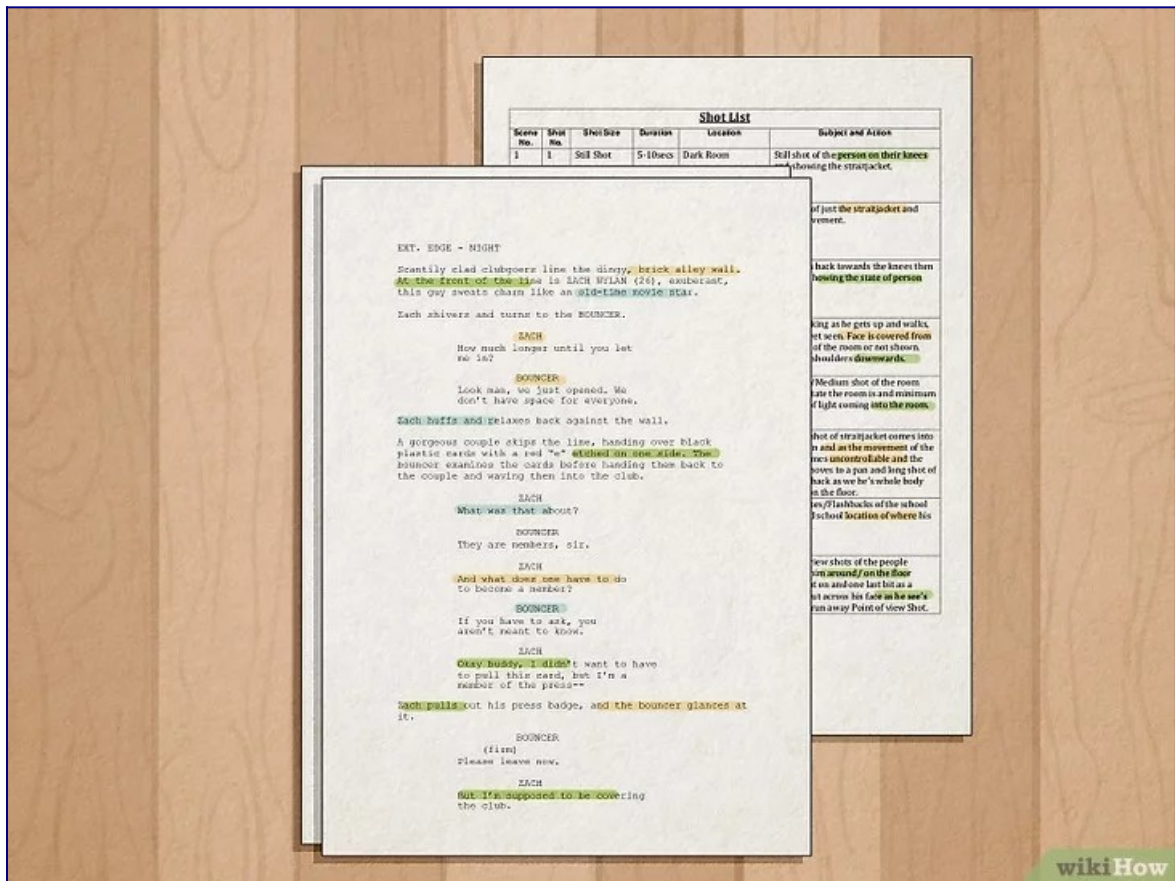 Shot List
Scene No. Shot No. Shot Size Duration Location Subject and Action
1 1 Still Shot 5-10secs Dark Room Still shot of the person on their knees
showing the straitjacket.
of just the straitjacket and
back towards the knees then
howing the state of person
king as he gets up and walks,
et seen. Face is covered from
of the room or not shown.
shoulders downwards.
/Medium shot of the room
tate the room is and minimum
f light coming into the room.
hot of straitjacket comes into
n and as the movement of the
mes uncontrollable and the
oves to a pan and long shot of
back as we he's whole body
on the floor.
es/Flashbacks of the school
school location of where his
iew shots of the people
im around/ on the floor
t on and one last bit as a
ut across his face as he see's
run away Point of view Shot.
EXT. EDGE - NIGHT
Scantily clad clubgoers line the dingy, brick alley wall.
At the front of the line is ZACH NYLAN (26), exuberant,
this guy sweats charm like an old-time movie star.
Zach shivers and turns to the BOUNCER.
ZACH
How much longer until you let
me in?
BOUNCER
Look man, we just opened. We
don't have space for everyone.
Zach huffs and relaxes back against the wall.
A gorgeous couple skips the line, handing over black
plastic cards with a red "e" etched on one side. The
bouncer examines the cards before handing them back to
the couple and waving them into the club.
ZACH
What was that about?
BOUNCER
They are members, sir.
ZACH
And what does one have to do
to become a member?
BOUNCER
If you have to ask, you
aren't meant to know.
ZACH
Okay buddy, I didn't want to have
to pull this card, but I'm a
member of the press--
Zach pulls out his press badge, and the bouncer glances at
it.
BOUNCER
(firm)
Please leave now.
ZACH
But I'm supposed to be covering
the club.
wikiHow